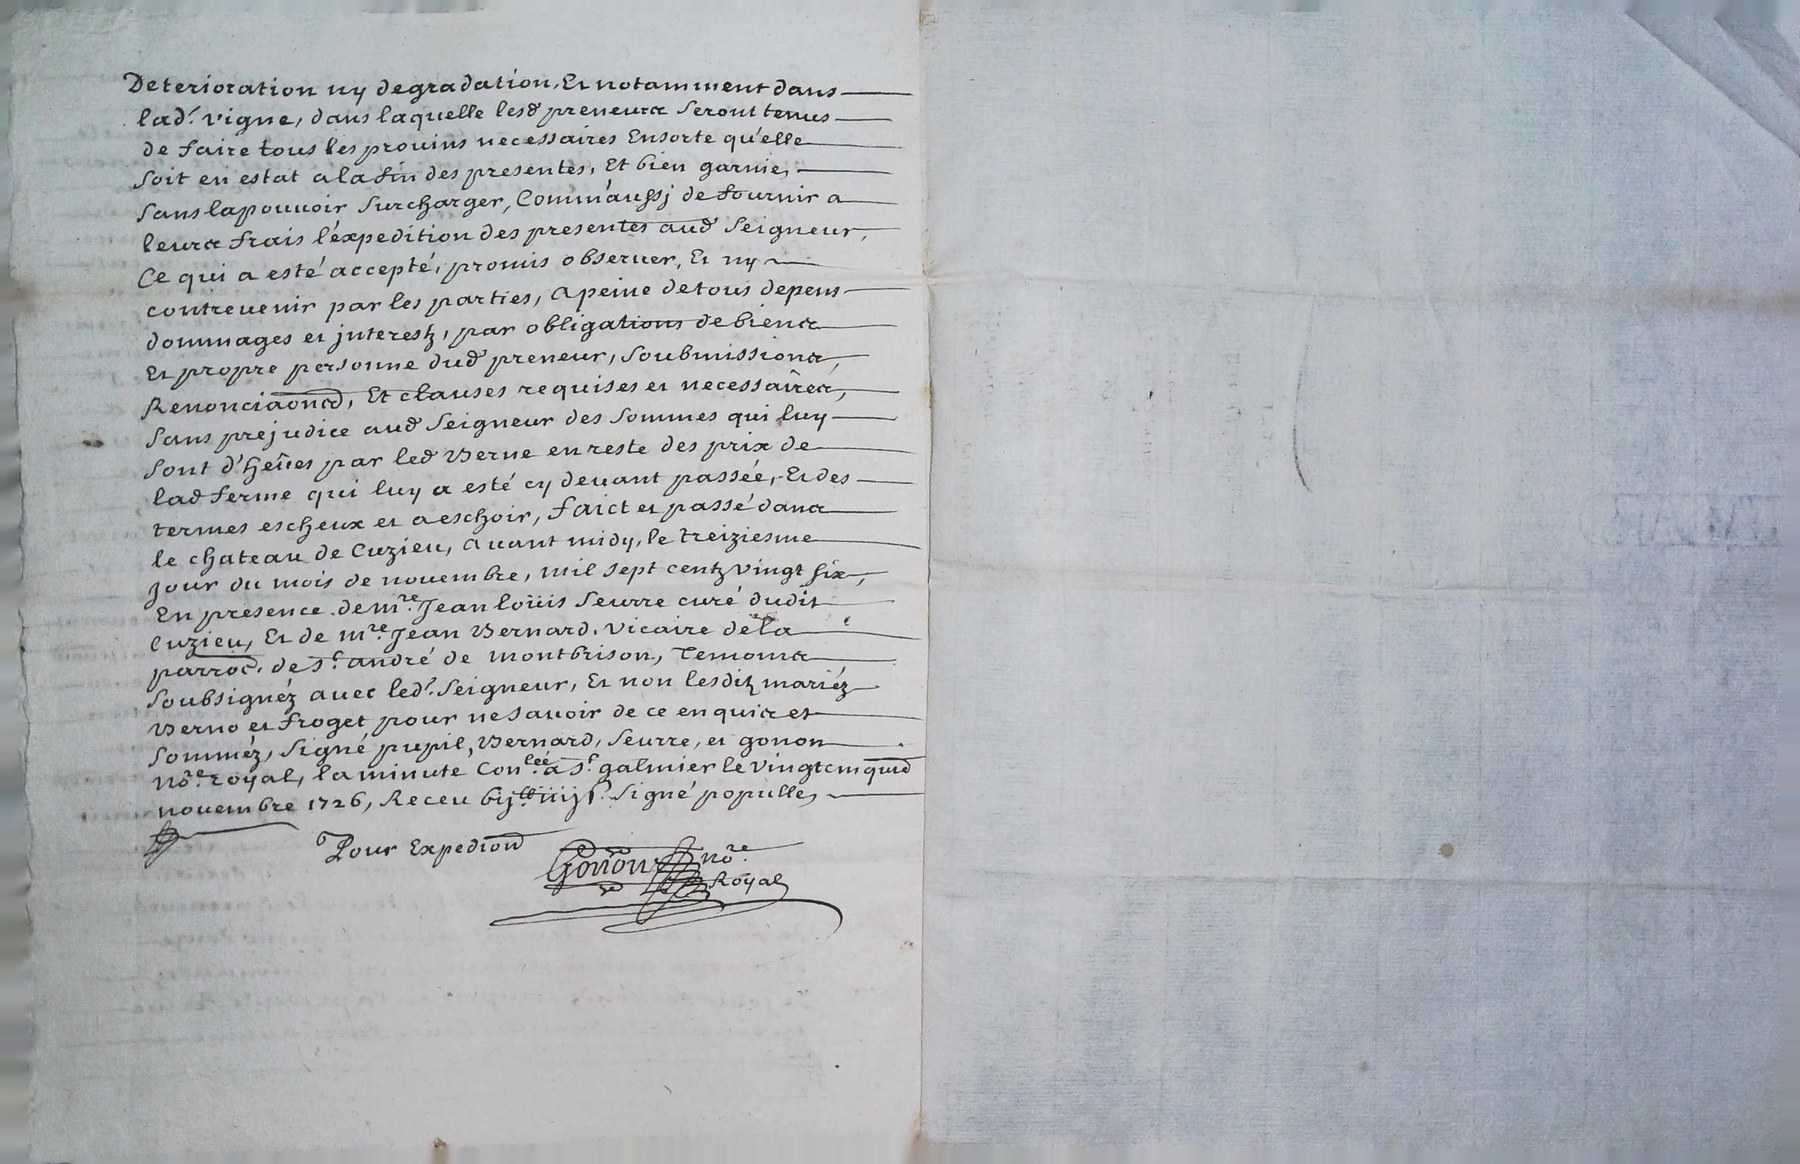 Deterioration ny degradation, Et notamment dans
lad.' vigne, dans laquelle lesd' preneurs seront tenus
de faire tous les prouins necessaires Ensorte qu'elle
soit en estat a la fin des presentes, Et bien garnie,
sans la pouuoir surcharger, Comm'aussj de fournir a
leurs frais l'expedition des presentes aud' seigneur,
Ce qui a esté accepté, promis obseruer, Et ny
contreuenir par les parties, a peine de tous depens
dommages et jnterestz, par obligations de biens
Et propre personne dud' preneur, soubmissions,
Renonciaons, Et clauses requises et necessaires,
sans prejudice aud' seigneur des sommes qui luy
sont d'hëues par led' Verne en reste des prix de
lad' ferme qui luy a esté cy deuant passée, Et des
termes escheux et a eschoir, faict et passé dans
le chateau de Cuzieu, auant midy, le treiziesme
jour du mois de nouembre, mil sept centz vingt six,
En presence de m.re Jean loüis seurre curé dudit
Cuzieu, Et de m.re Jean Bernard, vicaire de la
parroc. de s.t andré de montbrison, Temoins
soubsignéz auec led.' seigneur, Et non lesditz mariéz
Verno et froget pour ne sauoir de ce enquis et
sommèz, signé pupil, Bernard, seurre, et gonon
no.re royal, la minute Con.lée a s.t galmier le vingtcinq
nouembre 1726, Receu signé populle,
Pour Expedion
Gonon no.re
Royal